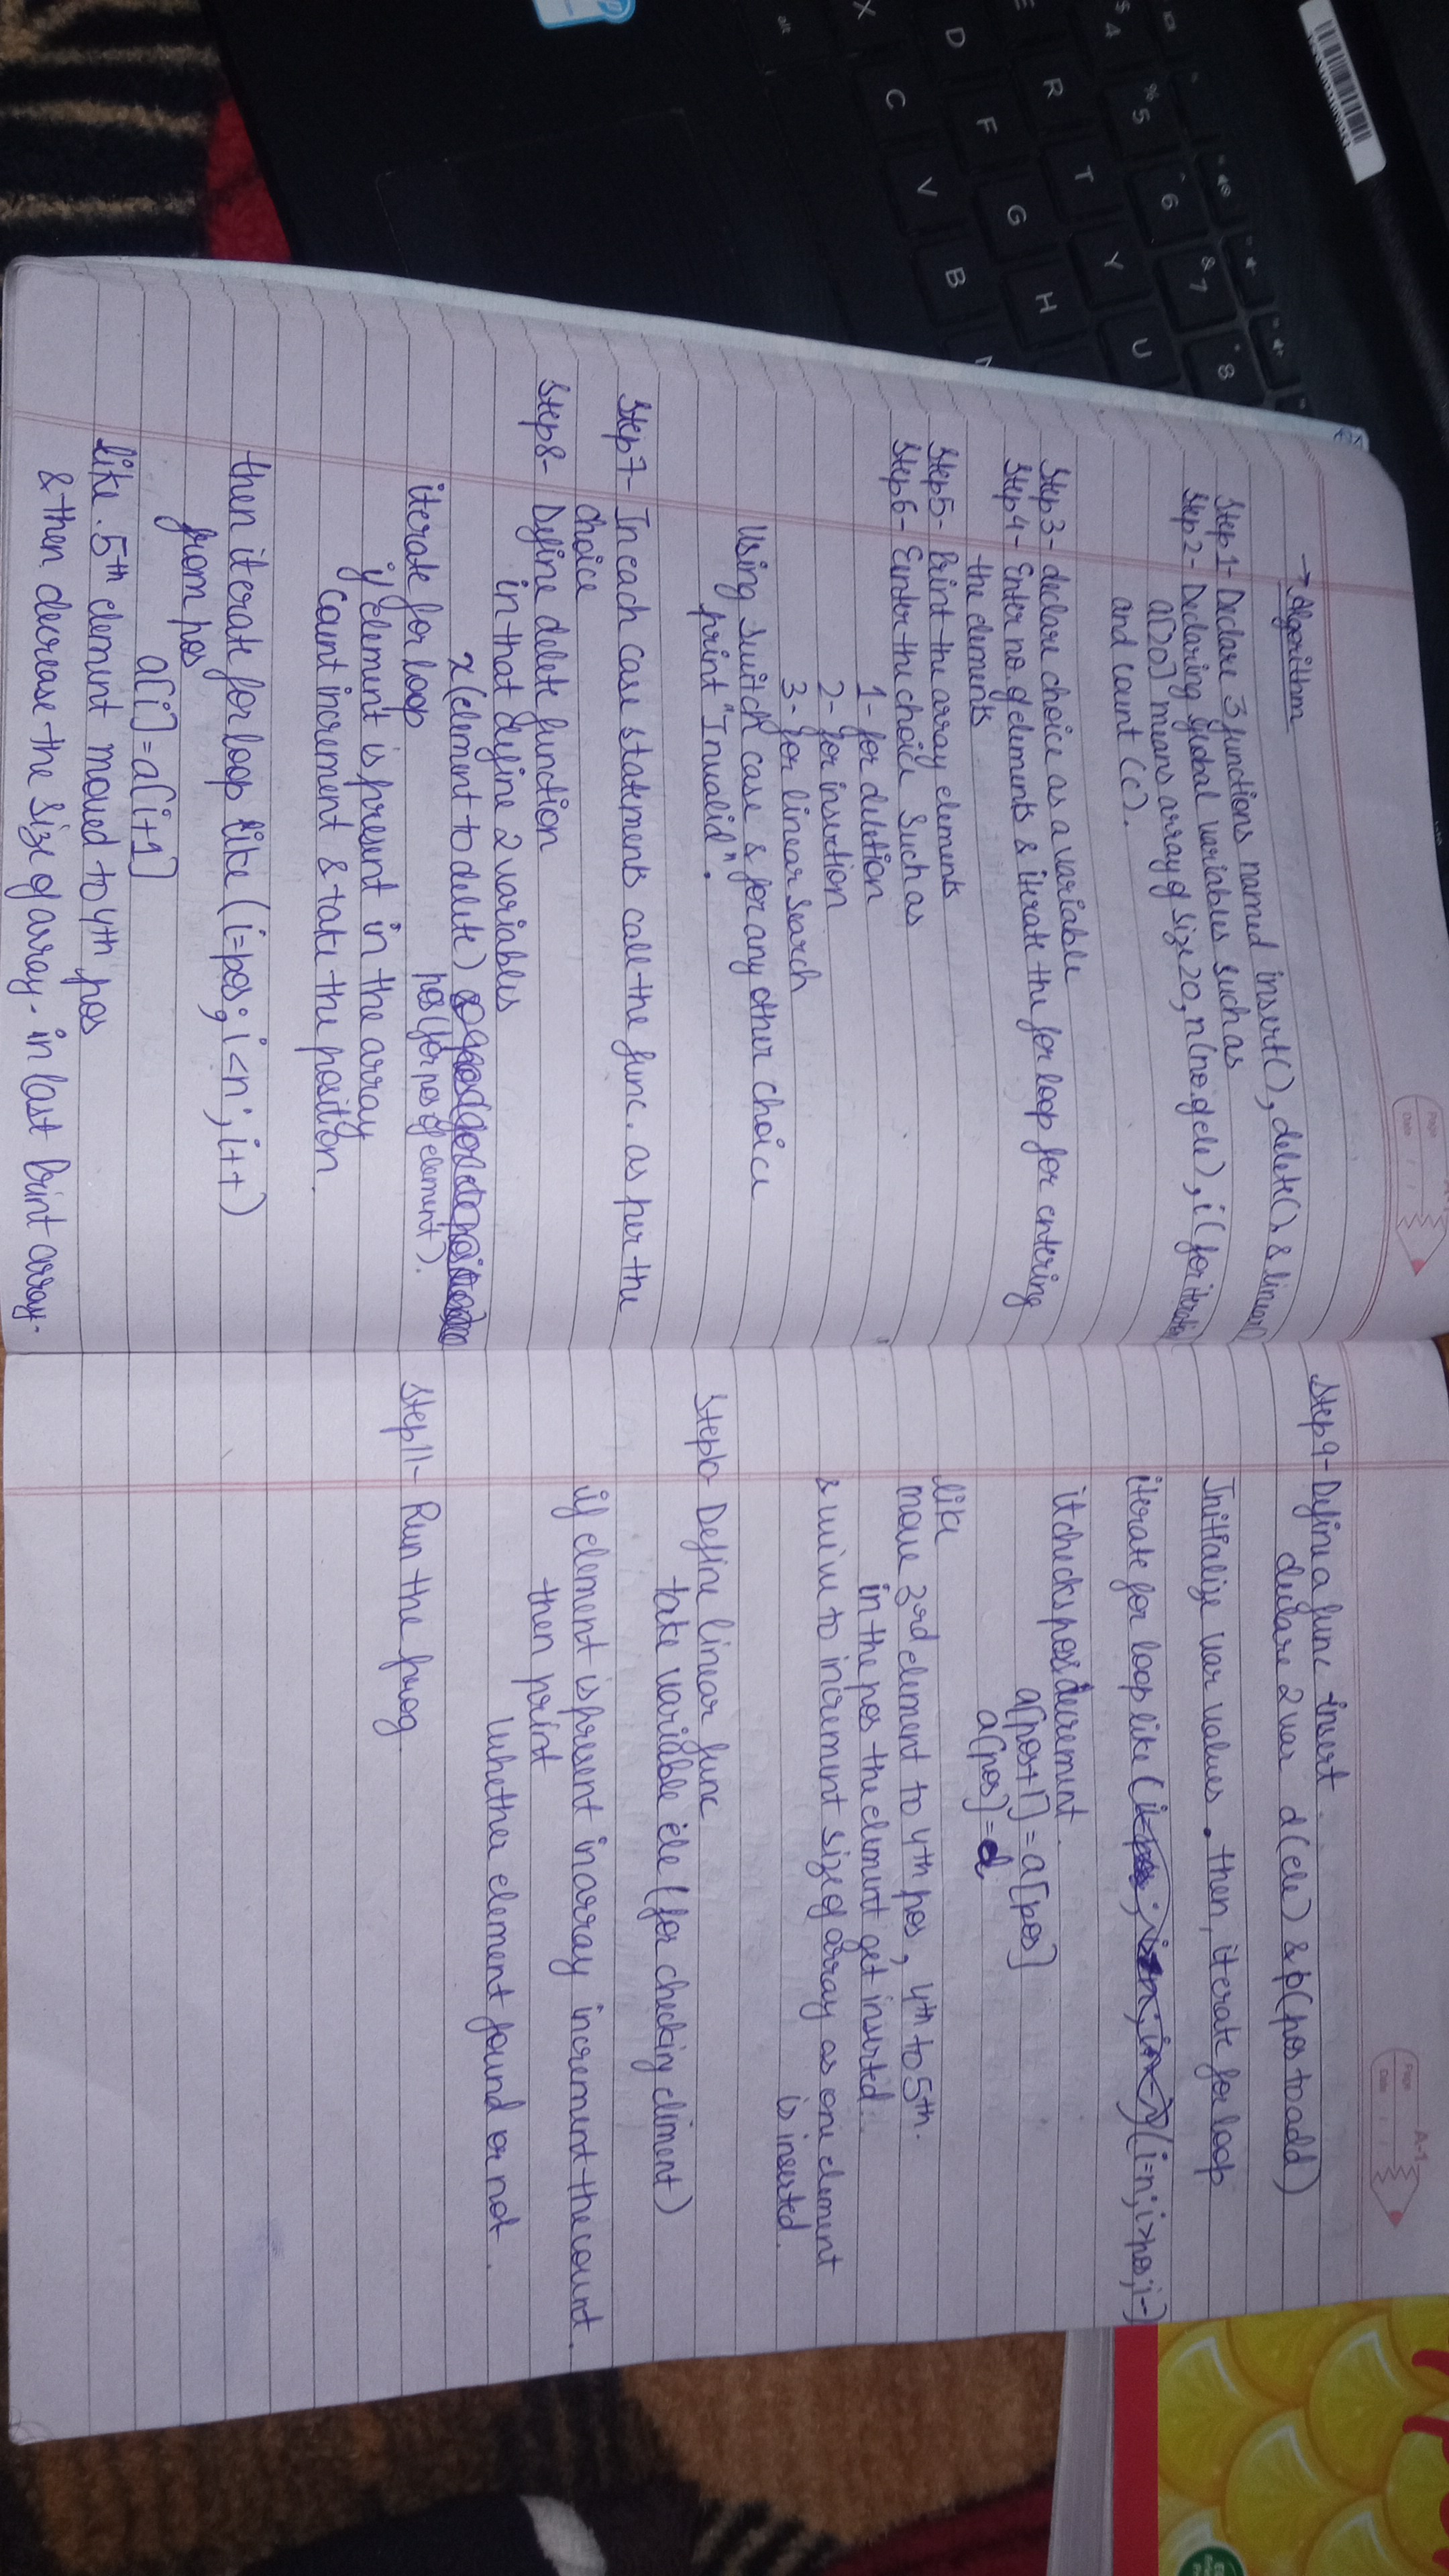 → Algorithm
Step 1- Declare 3 functions named insert(), delete(), & linear()
Step 2- Declaring global variables such as
a[20] means array of size 20, n(no. of ele), i (for iteration
and count (c).
Step 3- declare choice as a variable
Step 4- Enter no of elements & iterate the for loop for entering
the elements
Step 5- Print the array elements
Step 6- Enter the choice such as
1- for deletion
2- for insertion
3- for linear search
Using switch case & for any other choice
print "Invalid".
Step 7- In each case statements call the func. as per the
choice
Step 8- Define delete function
in that define 2 variables
x (element to delete) &
pos (for pos of element).
iterate for loop
if element is present in the array
count increment & take the position.
then iterate for loop like (i=pos; i<n; i++)
from pos
a[i]=a[i+1]
like. 5th element moved to 4th pos
& then decrease the size of array. in last print array.
Page
Date
A-1
Step 9- Define a func insert
declare 2 var d(ele) & p(pos to add)
Initialize var values. then, iterate for loop
iterate for loop like (i=n; i>pos; i-)
it checks pos decrement.
a[pos+1] = a[pos]
a[pos]=d
like
move 3rd element to 4th pos, 4th to 5th.
in the pos the element get inserted.
& time to increment size of array as one element
is inserted.
Step 10- Define linear func
take variable ele (for checking element)
if element is present in array increment the count.
then print
whether element found or not.
Step 11- Run the prog.
Page
Date
$ 4
% 5
^ 6
& 7
* 8
E
R
T
Y
U
D
F
G
H
X
C
V
B
alt